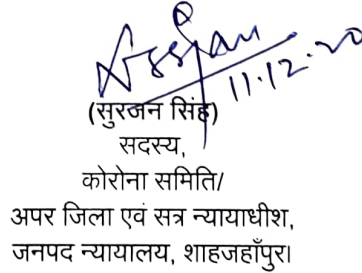 11.12.20
(सुरजन सिंह)
सदस्य,
कोरोना समिति/
अपर जिला एवं सत्र न्यायाधीश,
जनपद न्यायालय, शाहजहाँपुर।